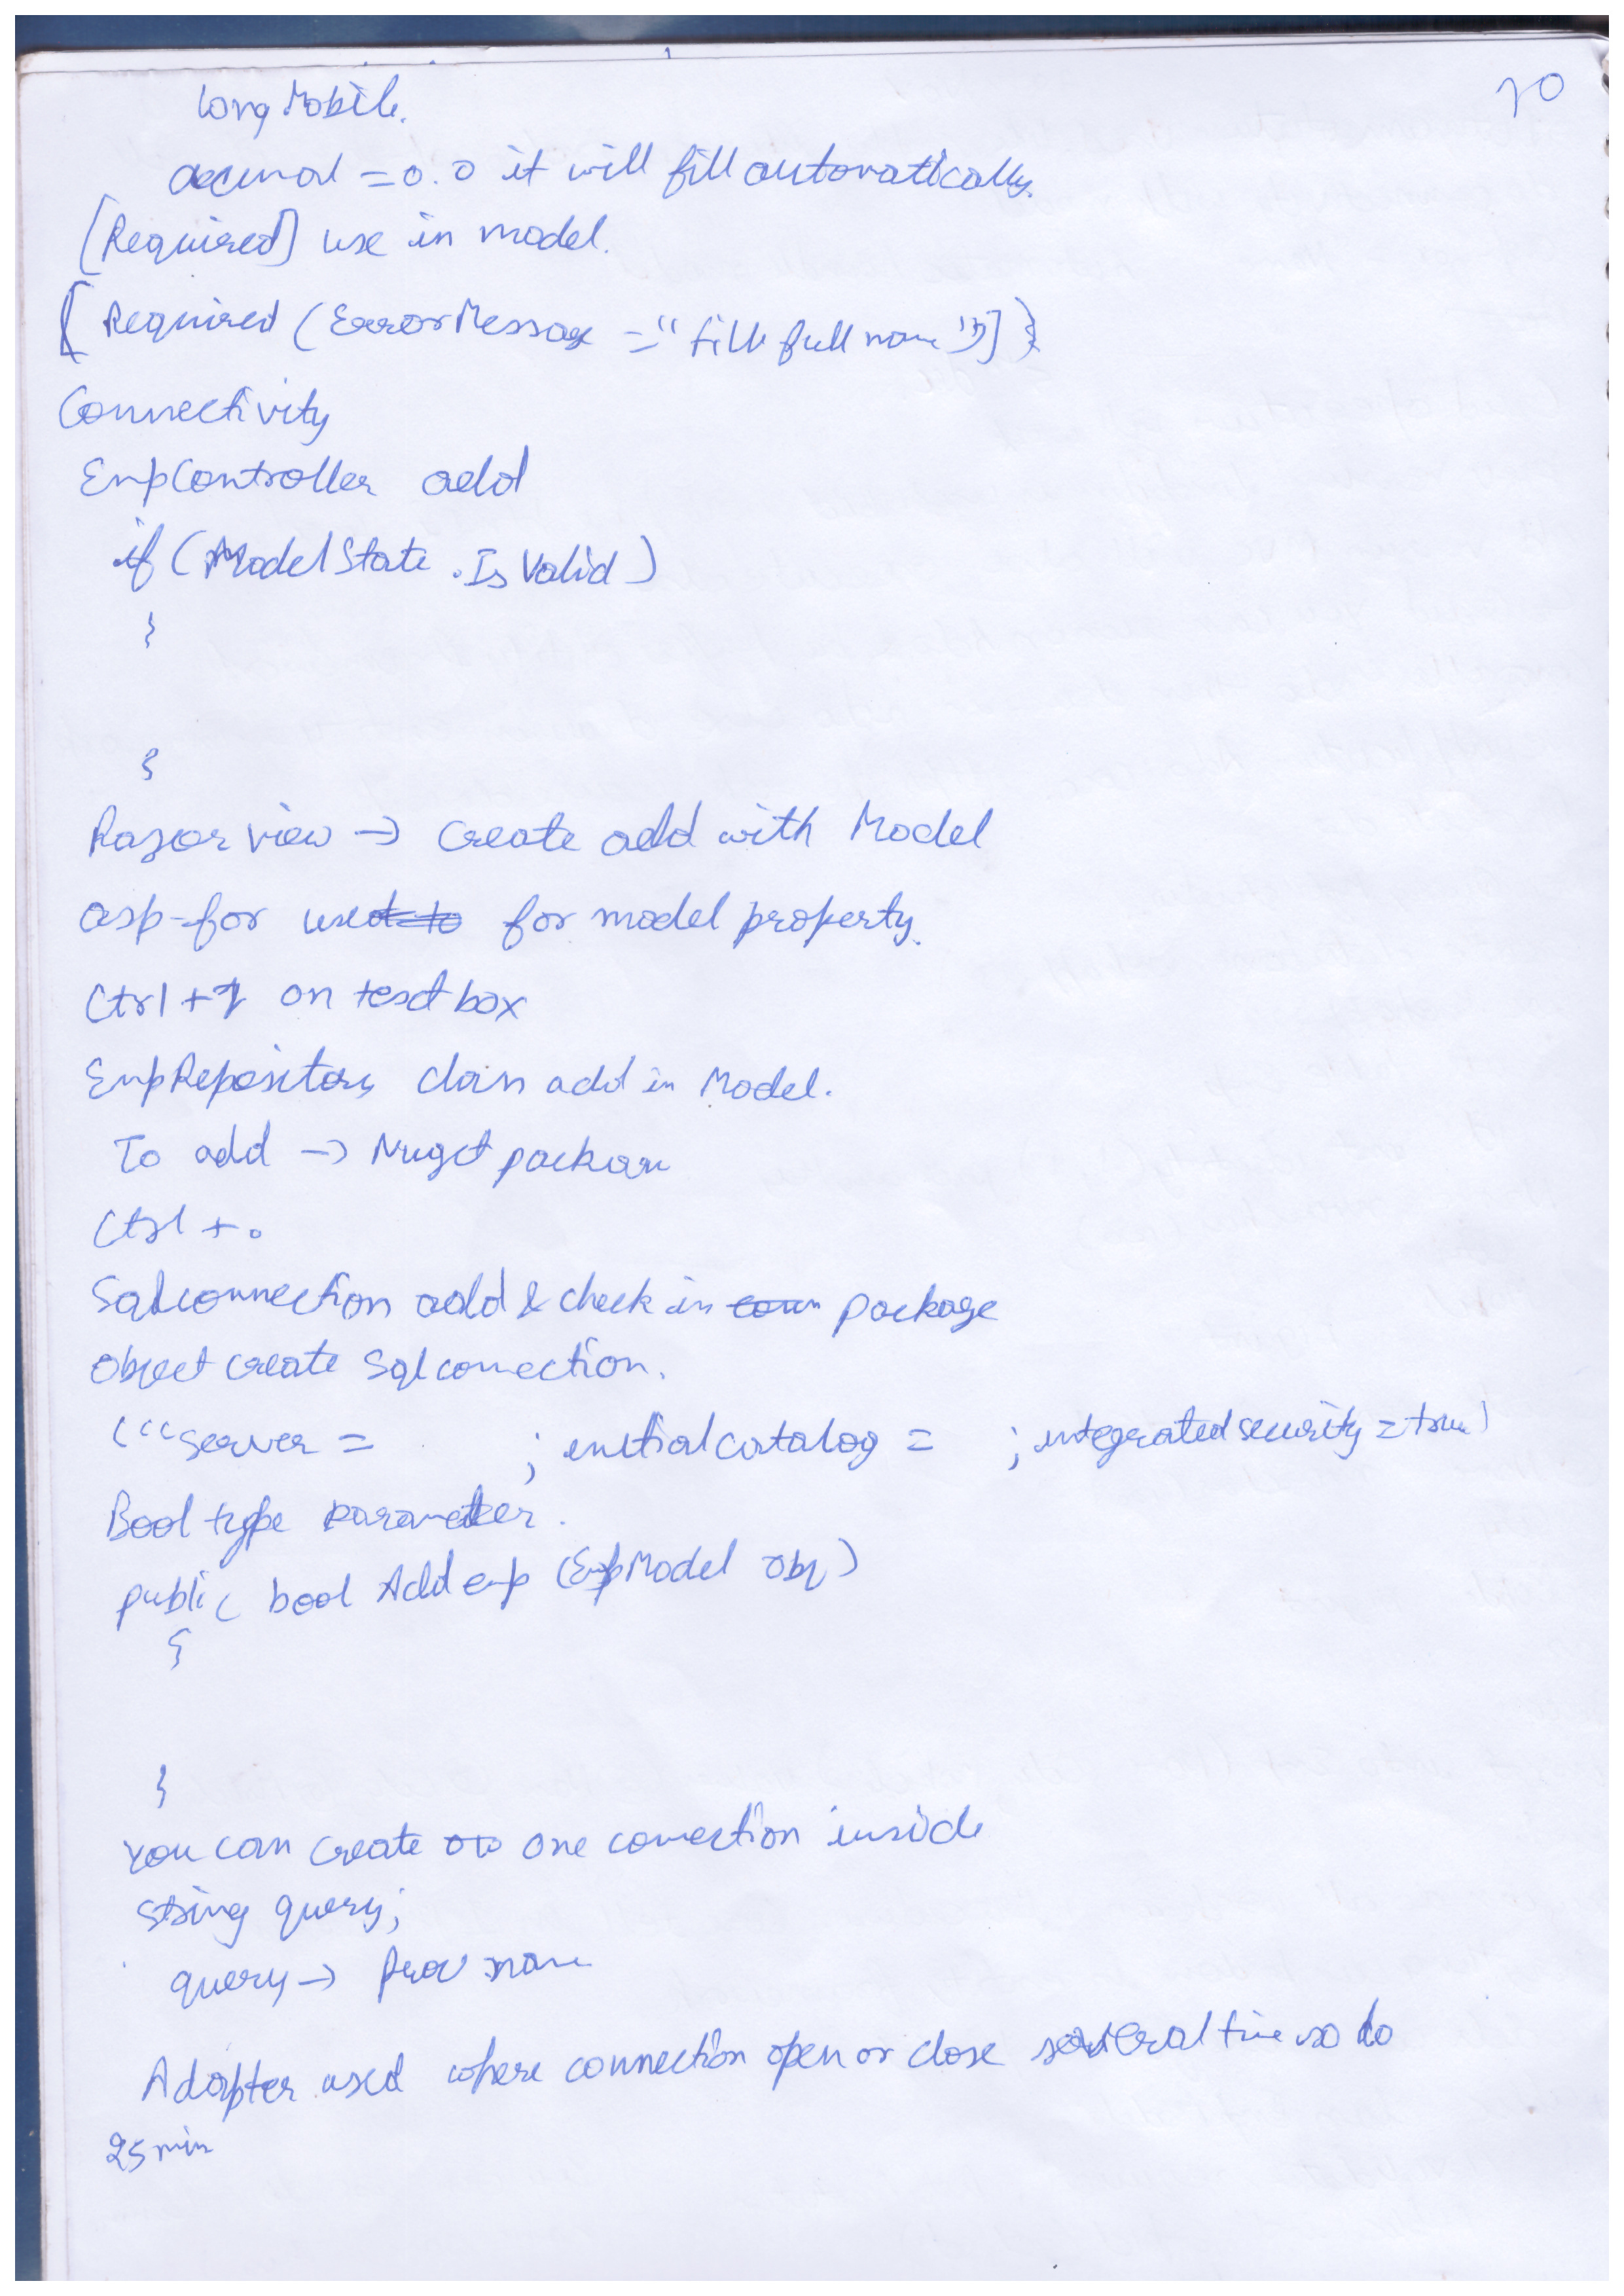 20
long Mobile.
decimal = 0.0 it will fill automatically.
[Required] use in model.
[Required (ErrorMessage = "fill full name")]}
Connectivity
EmpController add
if (ModelState.IsValid)
}
{
Razor view → Create add with Model
asp-for used to for model property.
Ctrl + on text box
EmpRepository class add in Model.
To add → Nuget package
Ctrl + .
Sqlconnection add & check in package
Object create Sqlconnection.
("server = ; initial catalog = ; integrated security = true)
Bool type parameter.
public bool Add emp (EmpModel obj)
{
}
You can create one connection inside
string query;
query → Proc name
Adapter used where connection open or close several time so do
25 min